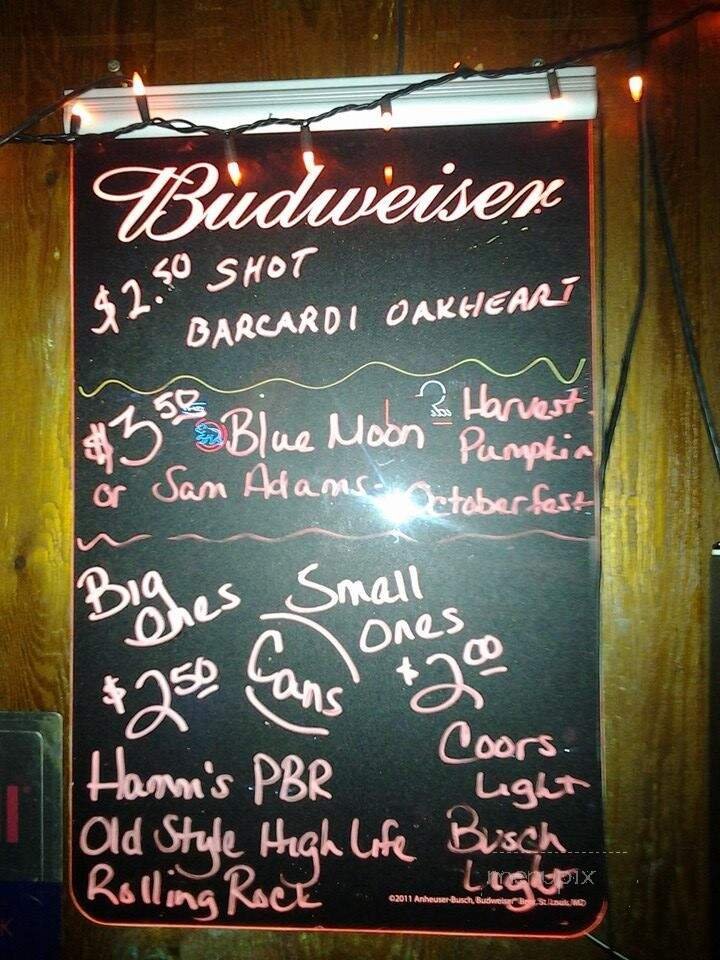 Budweiser
$2.50 SHOT
BARCARDI OAKHEART
$3.50 Blue Moon Harvest
Pumpkin
or Sam Adams - Octoberfest
Big Ones
$2.50
(Cans)
Small Ones
$2.00
Hamm's PBR
Old Style High Life
Rolling Rock
Coors
Light
Busch
Light
©2011 Anheuser-Busch, Budweiser® Beer, St. Louis, MO
menupix